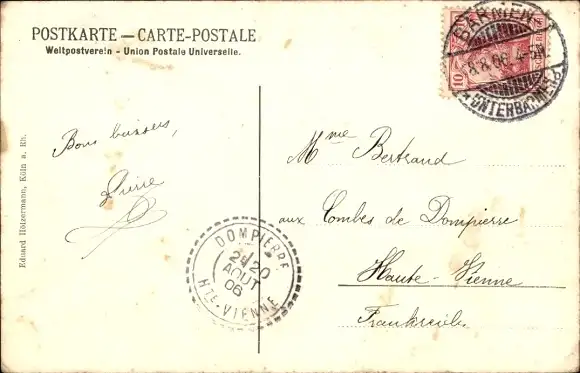 POSTKARTE — CARTE-POSTALE
Weltpostverein - Union Postale Universelle.
BARMEN
8.8.06.4-5N.
* UNTERBARMEN
10
Bons baisers,
Pierre
Mme Bertrand
aux Combes de Dompierre
Haute-Vienne
Frankreich
DOMPIERRE
20
AOUT
06
HTE-VIENNE
Eduard Holzermann, Köln a. Rh.